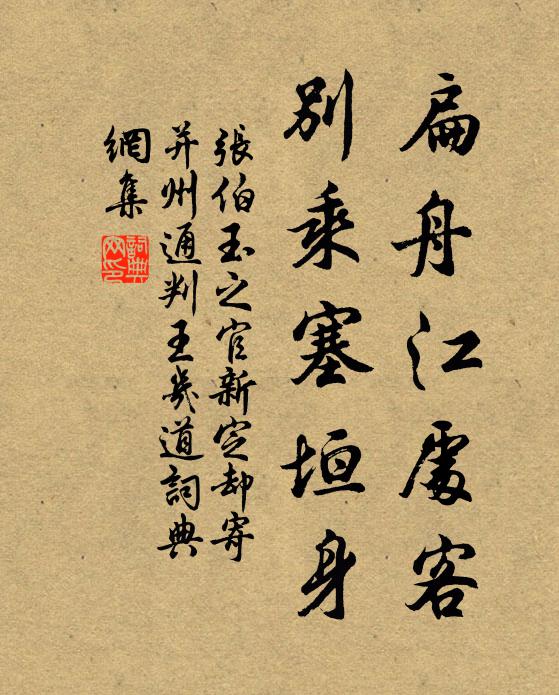 扁舟江處客
別乘塞垣身
張伯玉之官新定却寄
并州通判王幾道詞典
網集
詞典網印